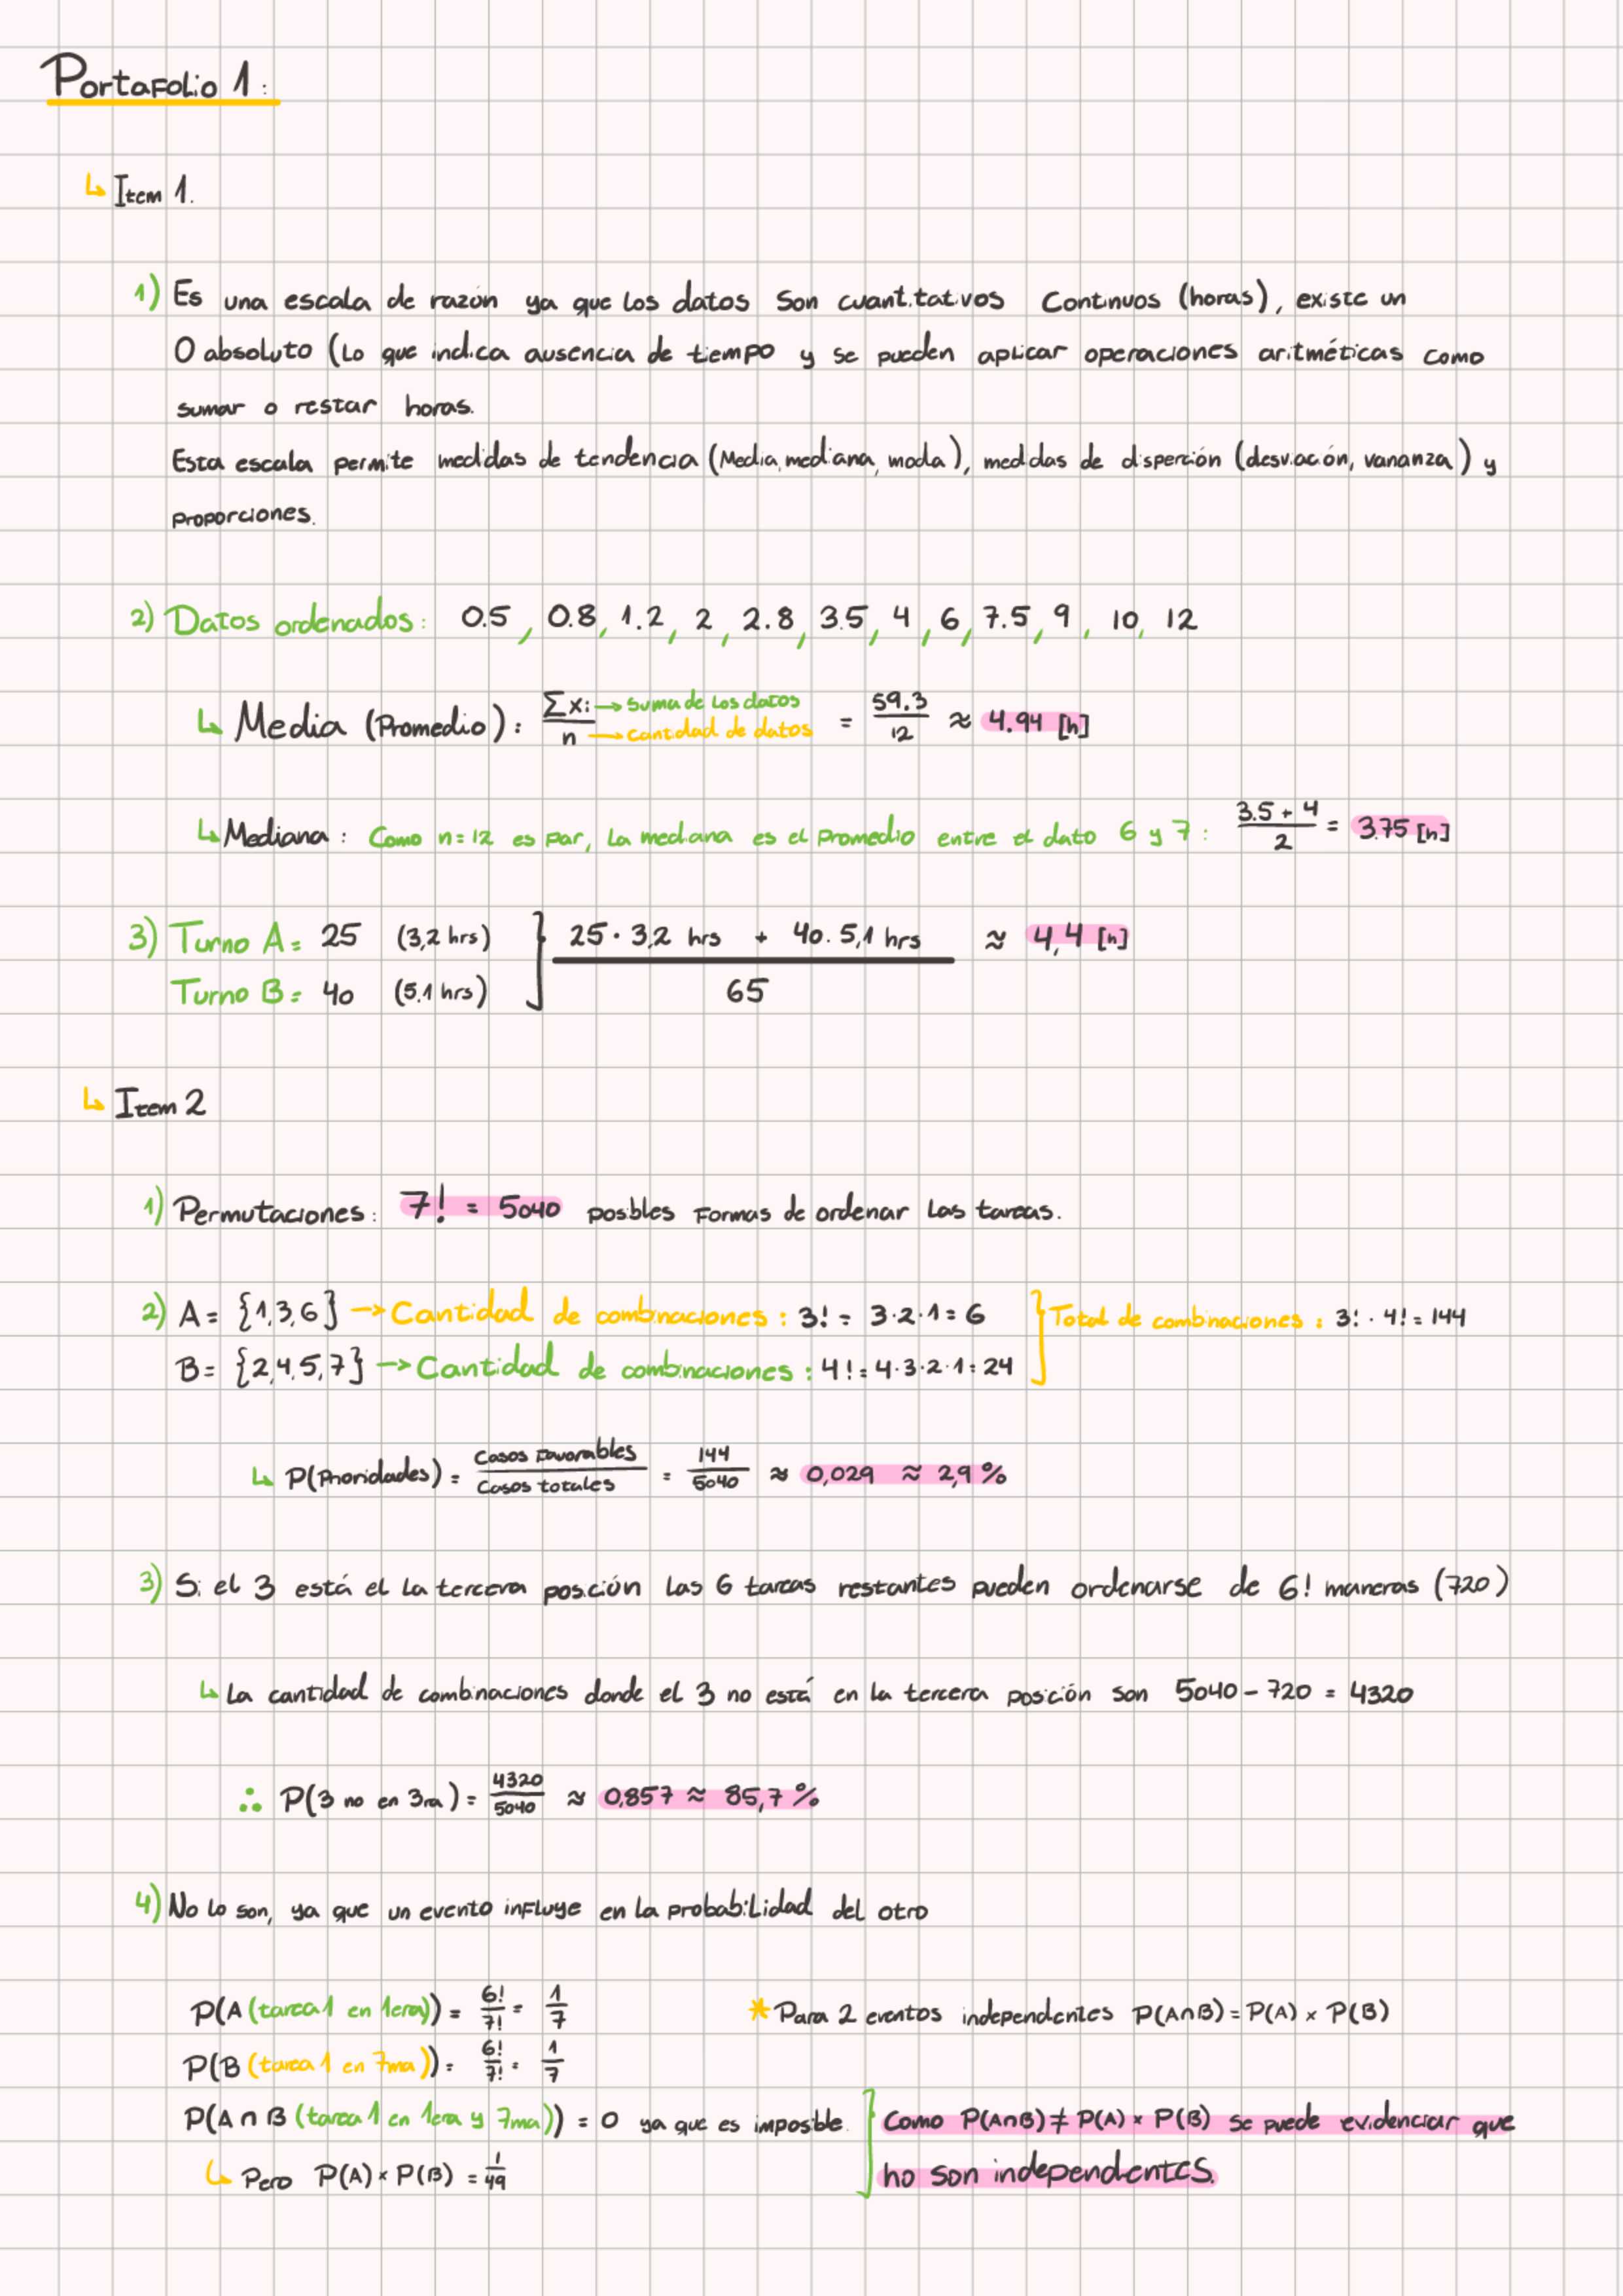 Portafolio 1:
↳ Item 1.
1) Es una escala de razón ya que los datos son cuantitativos continuos (horas), existe un
0 absoluto (lo que indica ausencia de tiempo y se pueden aplicar operaciones aritméticas como
sumar o restar horas.
Esta escala permite medidas de tendencia (Media, mediana, moda), medidas de disperción (desviación, varianza) y
proporciones.
2) Datos ordenados: 0.5, 0.8, 1.2, 2, 2.8, 3.5, 4, 6, 7.5, 9, 10, 12
↳ Media (Promedio): Σxi → suma de los datos / n → cantidad de datos = 59.3/12 ≈ 4.94 [h]
↳ Mediana: Como n=12 es par, la mediana es el promedio entre el dato 6 y 7: (3.5 + 4)/2 = 3.75 [h]
3) Turno A = 25 (3,2 hrs) } 25 · 3,2 hrs + 40 · 5,1 hrs ≈ 4,4 [h]
Turno B = 40 (5.1 hrs) 65
↳ Item 2
1) Permutaciones: 7! = 5040 posibles formas de ordenar las tareas.
2) A = {1,3,6} → Cantidad de combinaciones: 3! = 3·2·1 = 6 } Total de combinaciones: 3! · 4! = 144
B = {2,4,5,7} → Cantidad de combinaciones: 4! = 4·3·2·1 = 24
↳ P(Prioridades) = Casos favorables/Casos totales = 144/5040 ≈ 0,029 ≈ 2,9 %
3) Si el 3 está el la tercera posición las 6 tareas restantes pueden ordenarse de 6! maneras (720)
↳ La cantidad de combinaciones donde el 3 no está en la tercera posición son 5040 - 720 = 4320
∴ P(3 no en 3ra) = 4320/5040 ≈ 0,857 ≈ 85,7 %
4) No lo son, ya que un evento influye en la probabilidad del otro
P(A (tarea 1 en 1era)) = 6!/7! = 1/7 * Para 2 eventos independientes P(A∩B) = P(A) × P(B)
P(B (tarea 1 en 7ma)) = 6!/7! = 1/7
P(A∩B (tarea 1 en 1era y 7ma)) = 0 ya que es imposible. } Como P(A∩B) ≠ P(A) × P(B) se puede evidenciar que
↳ Pero P(A) × P(B) = 1/49 no son independientes.